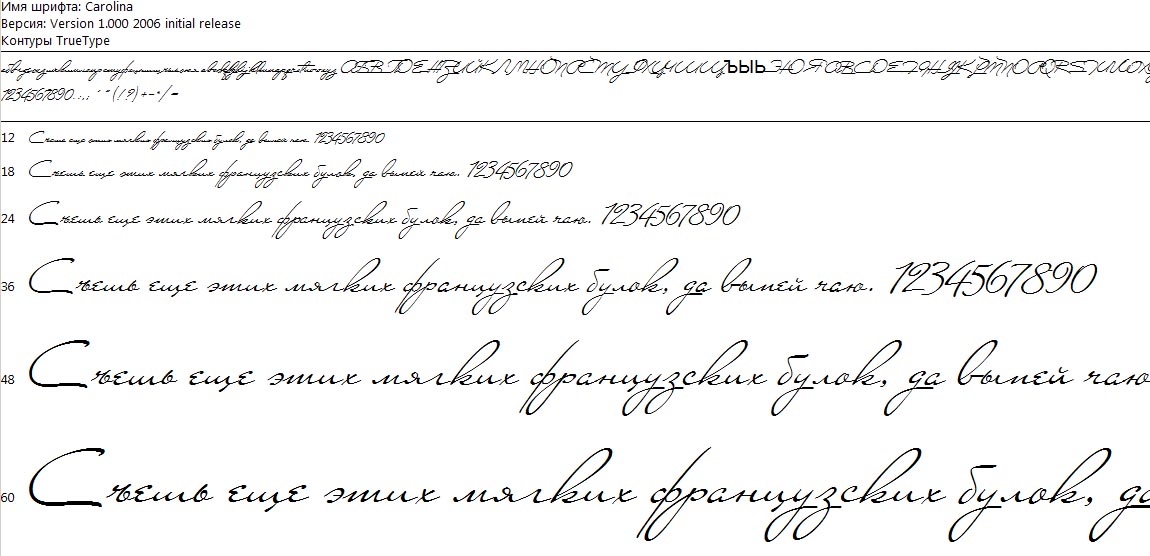 Имя шрифта: Carolina
Версия: Version 1.000 2006 initial release
Контуры TrueType
1234567890.:,; ' " (!?) +-*/=
12 Съешь еще этих мягких французских булок, да выпей чаю. 1234567890
18 Съешь еще этих мягких французских булок, да выпей чаю. 1234567890
24 Съешь еще этих мягких французских булок, да выпей чаю. 1234567890
36 Съешь еще этих мягких французских булок, да выпей чаю. 1234567890
48 Съешь еще этих мягких французских булок, да выпей чаю
60 Съешь еще этих мягких французских булок, да